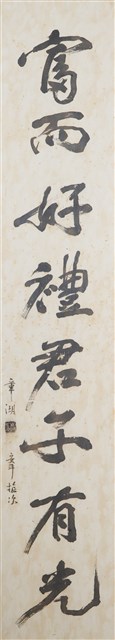 富而好禮君子有光
章湖